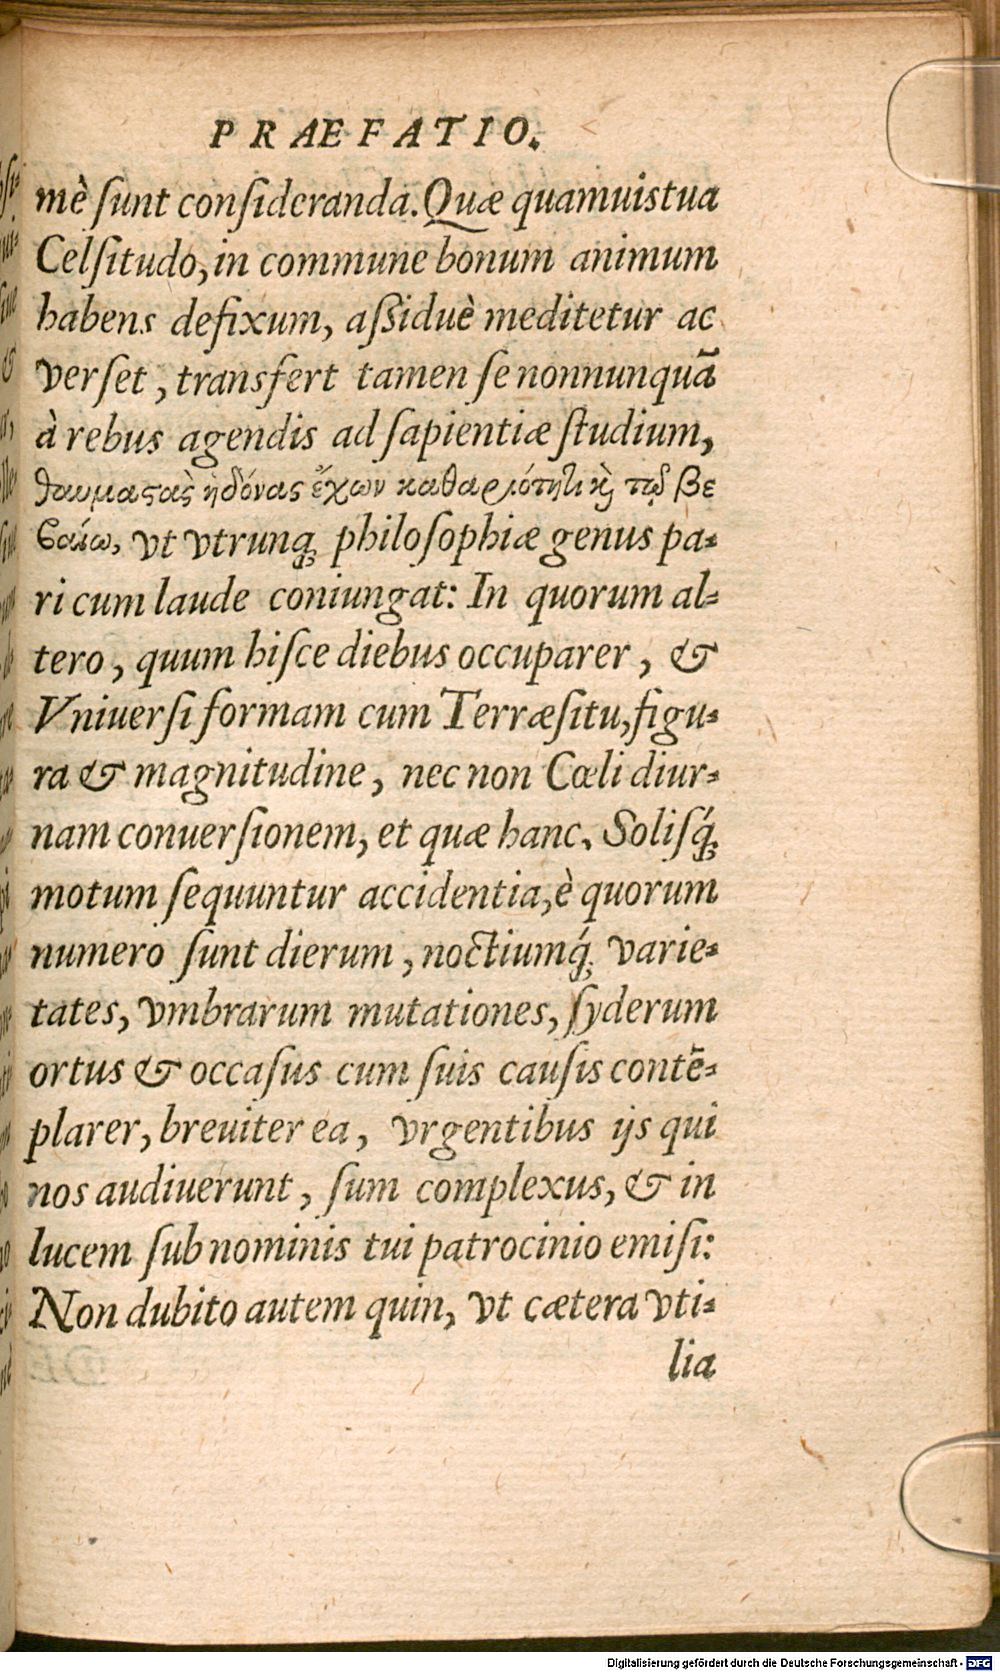 PRAEFATIO.
mè ſunt conſideranda. Quæ quamuis tua
Celſitudo, in commune bonum animum
habens defixum, aſsiduè meditetur ac
verſet, transfert tamen ſe nonnunquã
à rebus agendis ad ſapientiæ ſtudium,
θαυμαϛὰς ἡδόνας ἔχων καθαρλότητι κὶ τῷ βε
βαίω, vt vtrunq; philoſophiæ genus pa-
ri cum laude coniungat: In quorum al-
tero, quum hiſce diebus occuparer, &
Vniuerſi formam cum Terræ ſitu, figu-
ra & magnitudine, nec non Cœli diur-
nam conuerſionem, et quæ hanc, Soliſq́;
motum ſequuntur accidentia, è quorum
numero ſunt dierum, noctiumq́; varie-
tates, vmbrarum mutationes, ſyderum
ortus & occaſus cum ſuis cauſis contẽ-
plarer, breuiter ea, vrgentibus ijs qui
nos audiuerunt, ſum complexus, & in
lucem ſub nominis tui patrocinio emiſi:
Non dubito autem quin, vt cætera vti-
lia
Digitalisierung gefördert durch die Deutsche Forschungsgemeinschaft - DFG